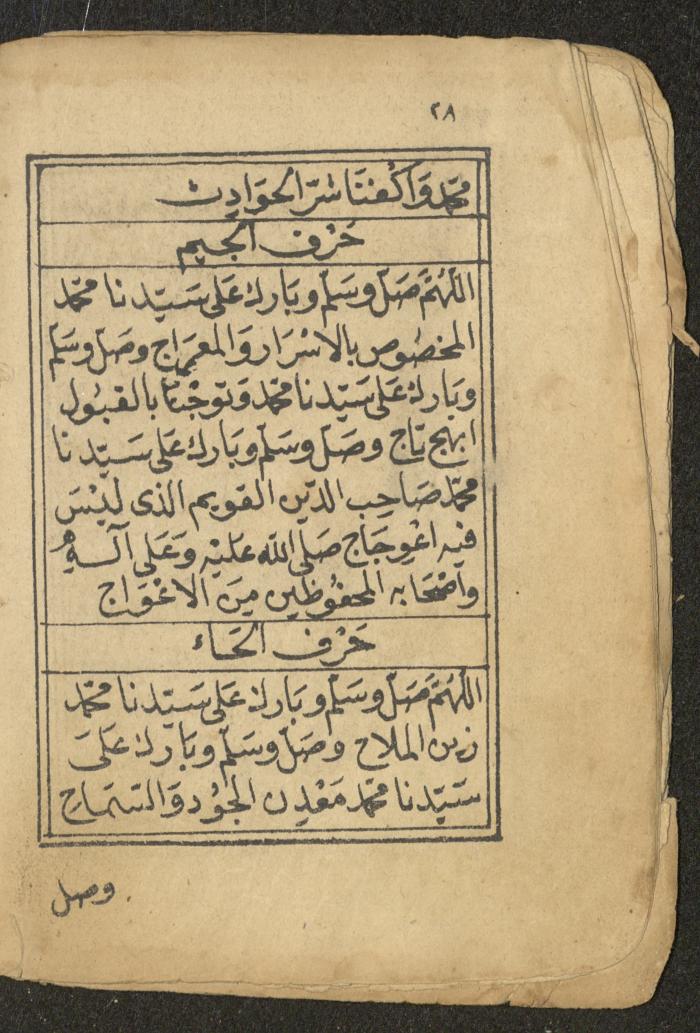 ٢٨
محمّد وَاكْفِنَا شرّ الحَوَادِث
حَرْف الجيم
اللّهُمَّ صَلّ وسَلّم وبَارك عَلى سَيّدنا محمّد
المخصُوص بالاسْرَار وَالمعرَاج وصَلّ وسَلّم
وبَارك عَلى سَيّدنا محمّد وَتوّجْنَا بالقبُول
ابهج تَاج وصَلّ وسَلّم وبَارك عَلى سَيّدنا
محمّد صَاحِب الدّين القويم الذى ليْسَ
فيه اعْوِجَاج صَلى الله عَليْه وَعَلى آلــهِ
واصْحَابه المحفُوظين مِنَ الاعْوَاج
حَرْف الحَـاء
اللّهُمَّ صَلّ وسَلّم وبَارك عَلى سَيّدنا محمّد
زين الملاح وصَلّ وسَلّم وبَارك عَلَى
سَيّدنا محمّد مَعْدِن الجُوْد وَالسّمَاحِ
وصل